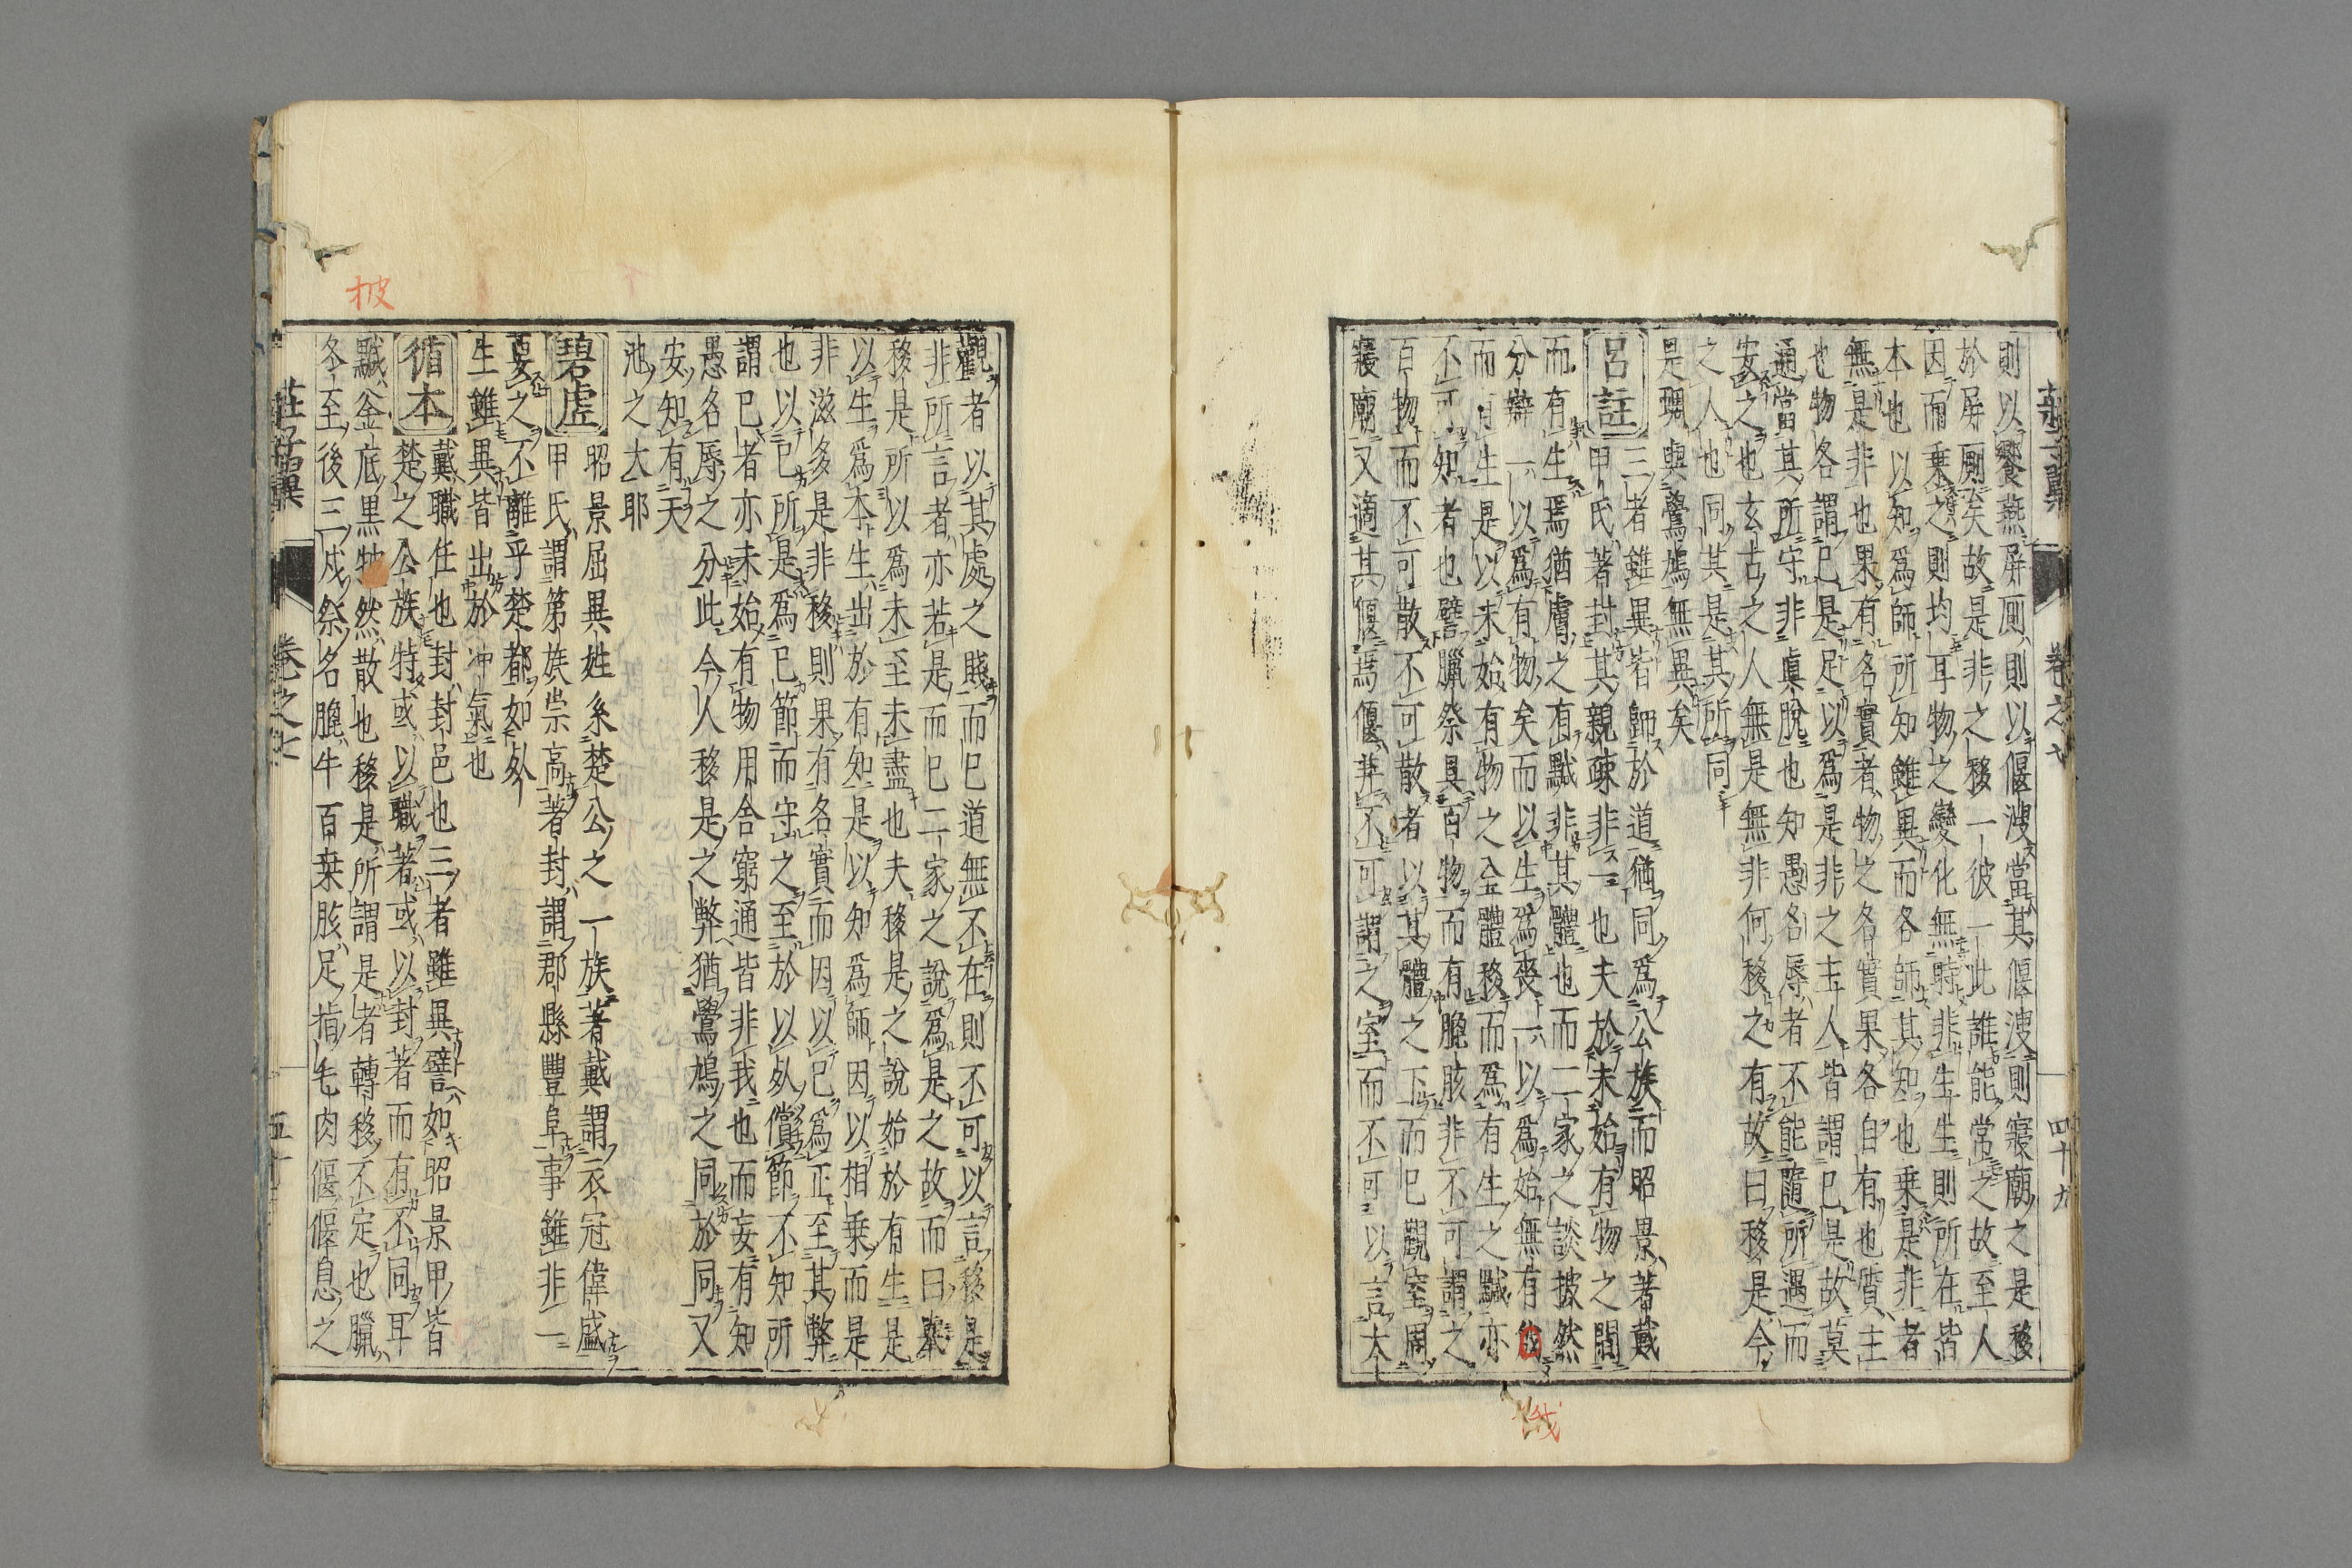 莊子翼 卷之七 四十九
則以饗燕屏厕則以偃溲當其偃溲則寢廟之是移
於屏厠矣故是非之移一彼一此誰能常之故至人
因而乗之則均耳物之變化無時非生生則所在皆
本也以知爲師所知雖異而各師其知也乗是非者
無是非也果有名實者物之名實果各自有也質主
也物各謂已是足以爲是非之主人皆謂已是故莫
通當其所守非眞脫也知愚名辱者不能隨所遇而
安之也玄古之人無是無非何移之有故曰移是今
之人也同其是其所同
是蜩與鷽鳩無異矣
呂註 三者雖異皆歸於道猶同爲公族而昭景著戴
甲氏著封其親疎非一也夫於未始有物之間
而有生焉猶膚之有黬非其體也而二家之談披然
分辯一以爲有物矣而以生爲喪一以爲始無有
而有生是以未始有物之全體移而爲有生之黬亦
不可知者也譬臘祭具百物而有膍胲非不可謂之
百物而不可散不可散者以其體之下而已觀室周
寢廟又適其偃焉偃並不可謂之室而不可以言大
觀者以其處之賤而已道無不在則不可以言移是
非所言者亦若是而已二家之說爲是之故而曰舉
移是所以爲未至未盡也夫移是之說始於有生是
以生爲本生出於有知是以知爲師因以相乗而是
非滋多是非移則果有名實而因以已爲正至其弊
也以已所是爲已節而守之至於以死償節不知所
謂已者亦未始有物用舎窮通皆非我也而妄有知
愚名辱之分此今人移是之弊猶鷽鳩之同於同又
安知有天
池之大耶
碧虚 昭景屈異姓系楚公之一族著戴謂衣冠偉盛
甲氏謂第族崇高著封謂郡縣豐阜事雖非一
要之不離乎楚都如死
生雖異皆出於冲氣也
循本 戴職任也封封邑也三者雖異譬如昭景甲皆
楚之公族特或以職著或以封著而有不同耳
黬釜底黒也披然散也移是所謂是者轉移不定也臘
冬至後三戌祭名膍牛百葉胲足指毛肉偃偃息之
莊子翼 卷之七 五十
披